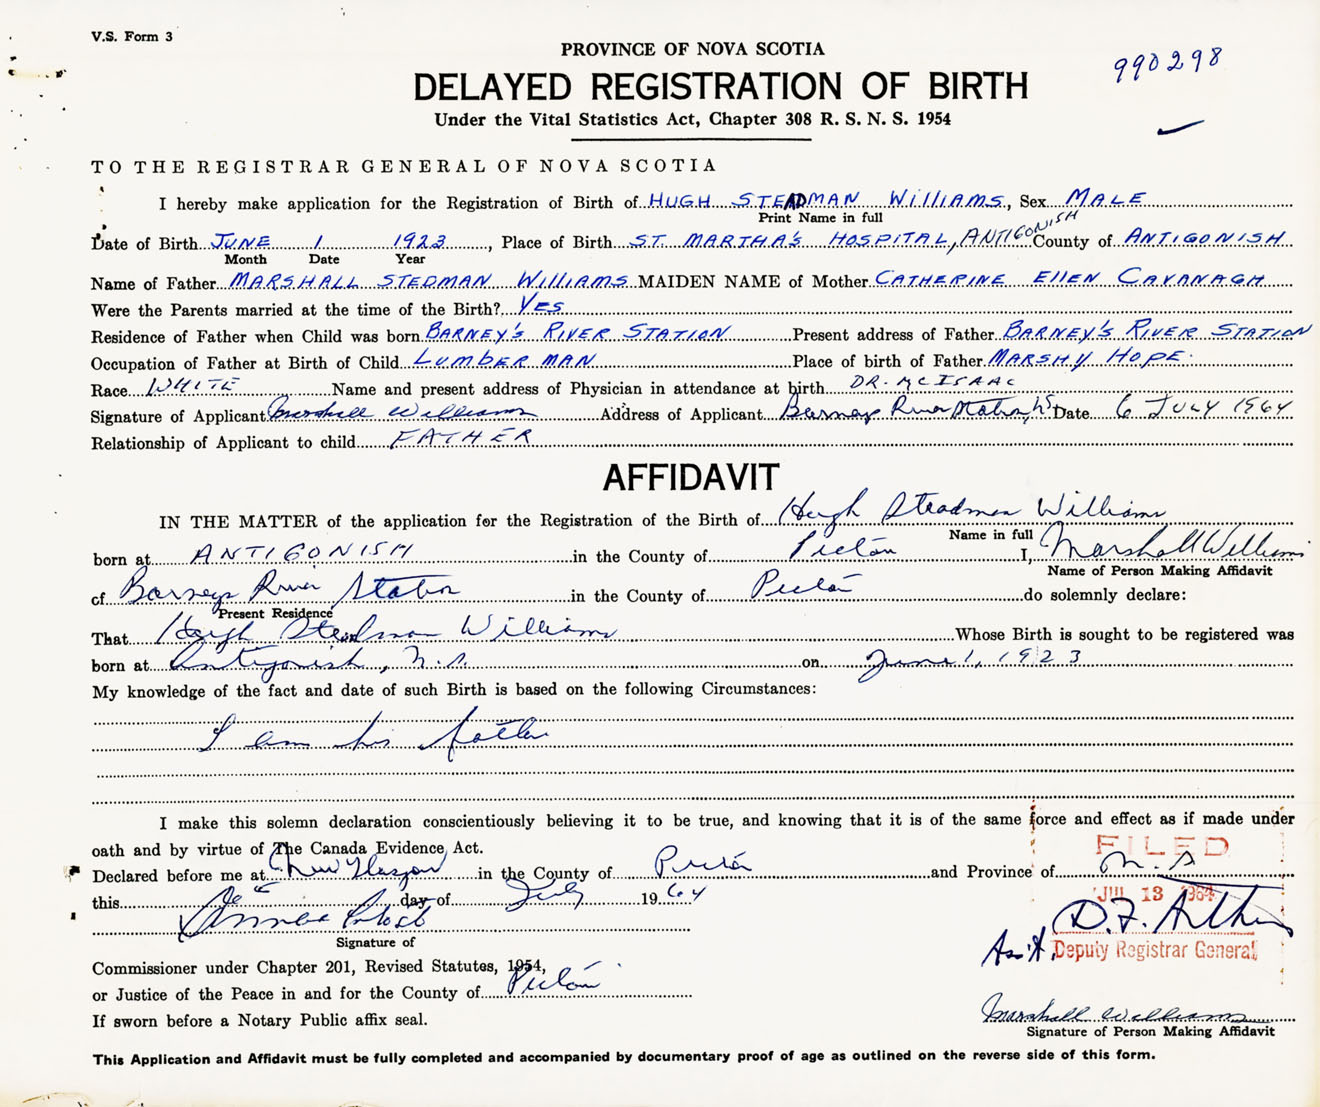 V.S. Form 3
PROVINCE OF NOVA SCOTIA
990298
DELAYED REGISTRATION OF BIRTH
Under the Vital Statistics Act, Chapter 308 R. S. N. S. 1954
TO THE REGISTRAR GENERAL OF NOVA SCOTIA
I hereby make application for the Registration of Birth of HUGH STEADMAN WILLIAMS, Sex MALE
Print Name in full
Date of Birth JUNE 1 1923, Place of Birth ST. MARTHA'S HOSPITAL, ANTIGONISH County of ANTIGONISH
Month Date Year
Name of Father MARSHALL STEDMAN WILLIAMS MAIDEN NAME of Mother CATHERINE ELLEN CAVANAGH
Were the Parents married at the time of the Birth? YES
Residence of Father when Child was born BARNEY'S RIVER STATION Present address of Father BARNEY'S RIVER STATION
Occupation of Father at Birth of Child LUMBERMAN Place of birth of Father MARSHY HOPE.
Race WHITE Name and present address of Physician in attendance at birth DR. MCISAAC
Signature of Applicant Marshall Williams Address of Applicant Barneys River Station, NS Date 6 JULY 1964
Relationship of Applicant to child FATHER
AFFIDAVIT
IN THE MATTER of the application for the Registration of the Birth of Hugh Steadman Williams
Name in full
born at ANTIGONISH in the County of Pictou I, Marshall Williams
Name of Person Making Affidavit
of Barneys River Station in the County of Pictou do solemnly declare:
Present Residence
That Hugh Steadman Williams Whose Birth is sought to be registered was
born at Antigonish, N.S. on June 1, 1923
My knowledge of the fact and date of such Birth is based on the following Circumstances:
I am his father
I make this solemn declaration conscientiously believing it to be true, and knowing that it is of the same force and effect as if made under
oath and by virtue of The Canada Evidence Act.
FILED
Declared before me at New Glasgow in the County of Pictou and Province of N.S.
this day of July 1964
JUL 13 1964
D.F. Arthur
Signature of
Ass't. Deputy Registrar General
Commissioner under Chapter 201, Revised Statutes, 1954,
or Justice of the Peace in and for the County of Pictou
If sworn before a Notary Public affix seal.
Marshall Williams
Signature of Person Making Affidavit
This Application and Affidavit must be fully completed and accompanied by documentary proof of age as outlined on the reverse side of this form.